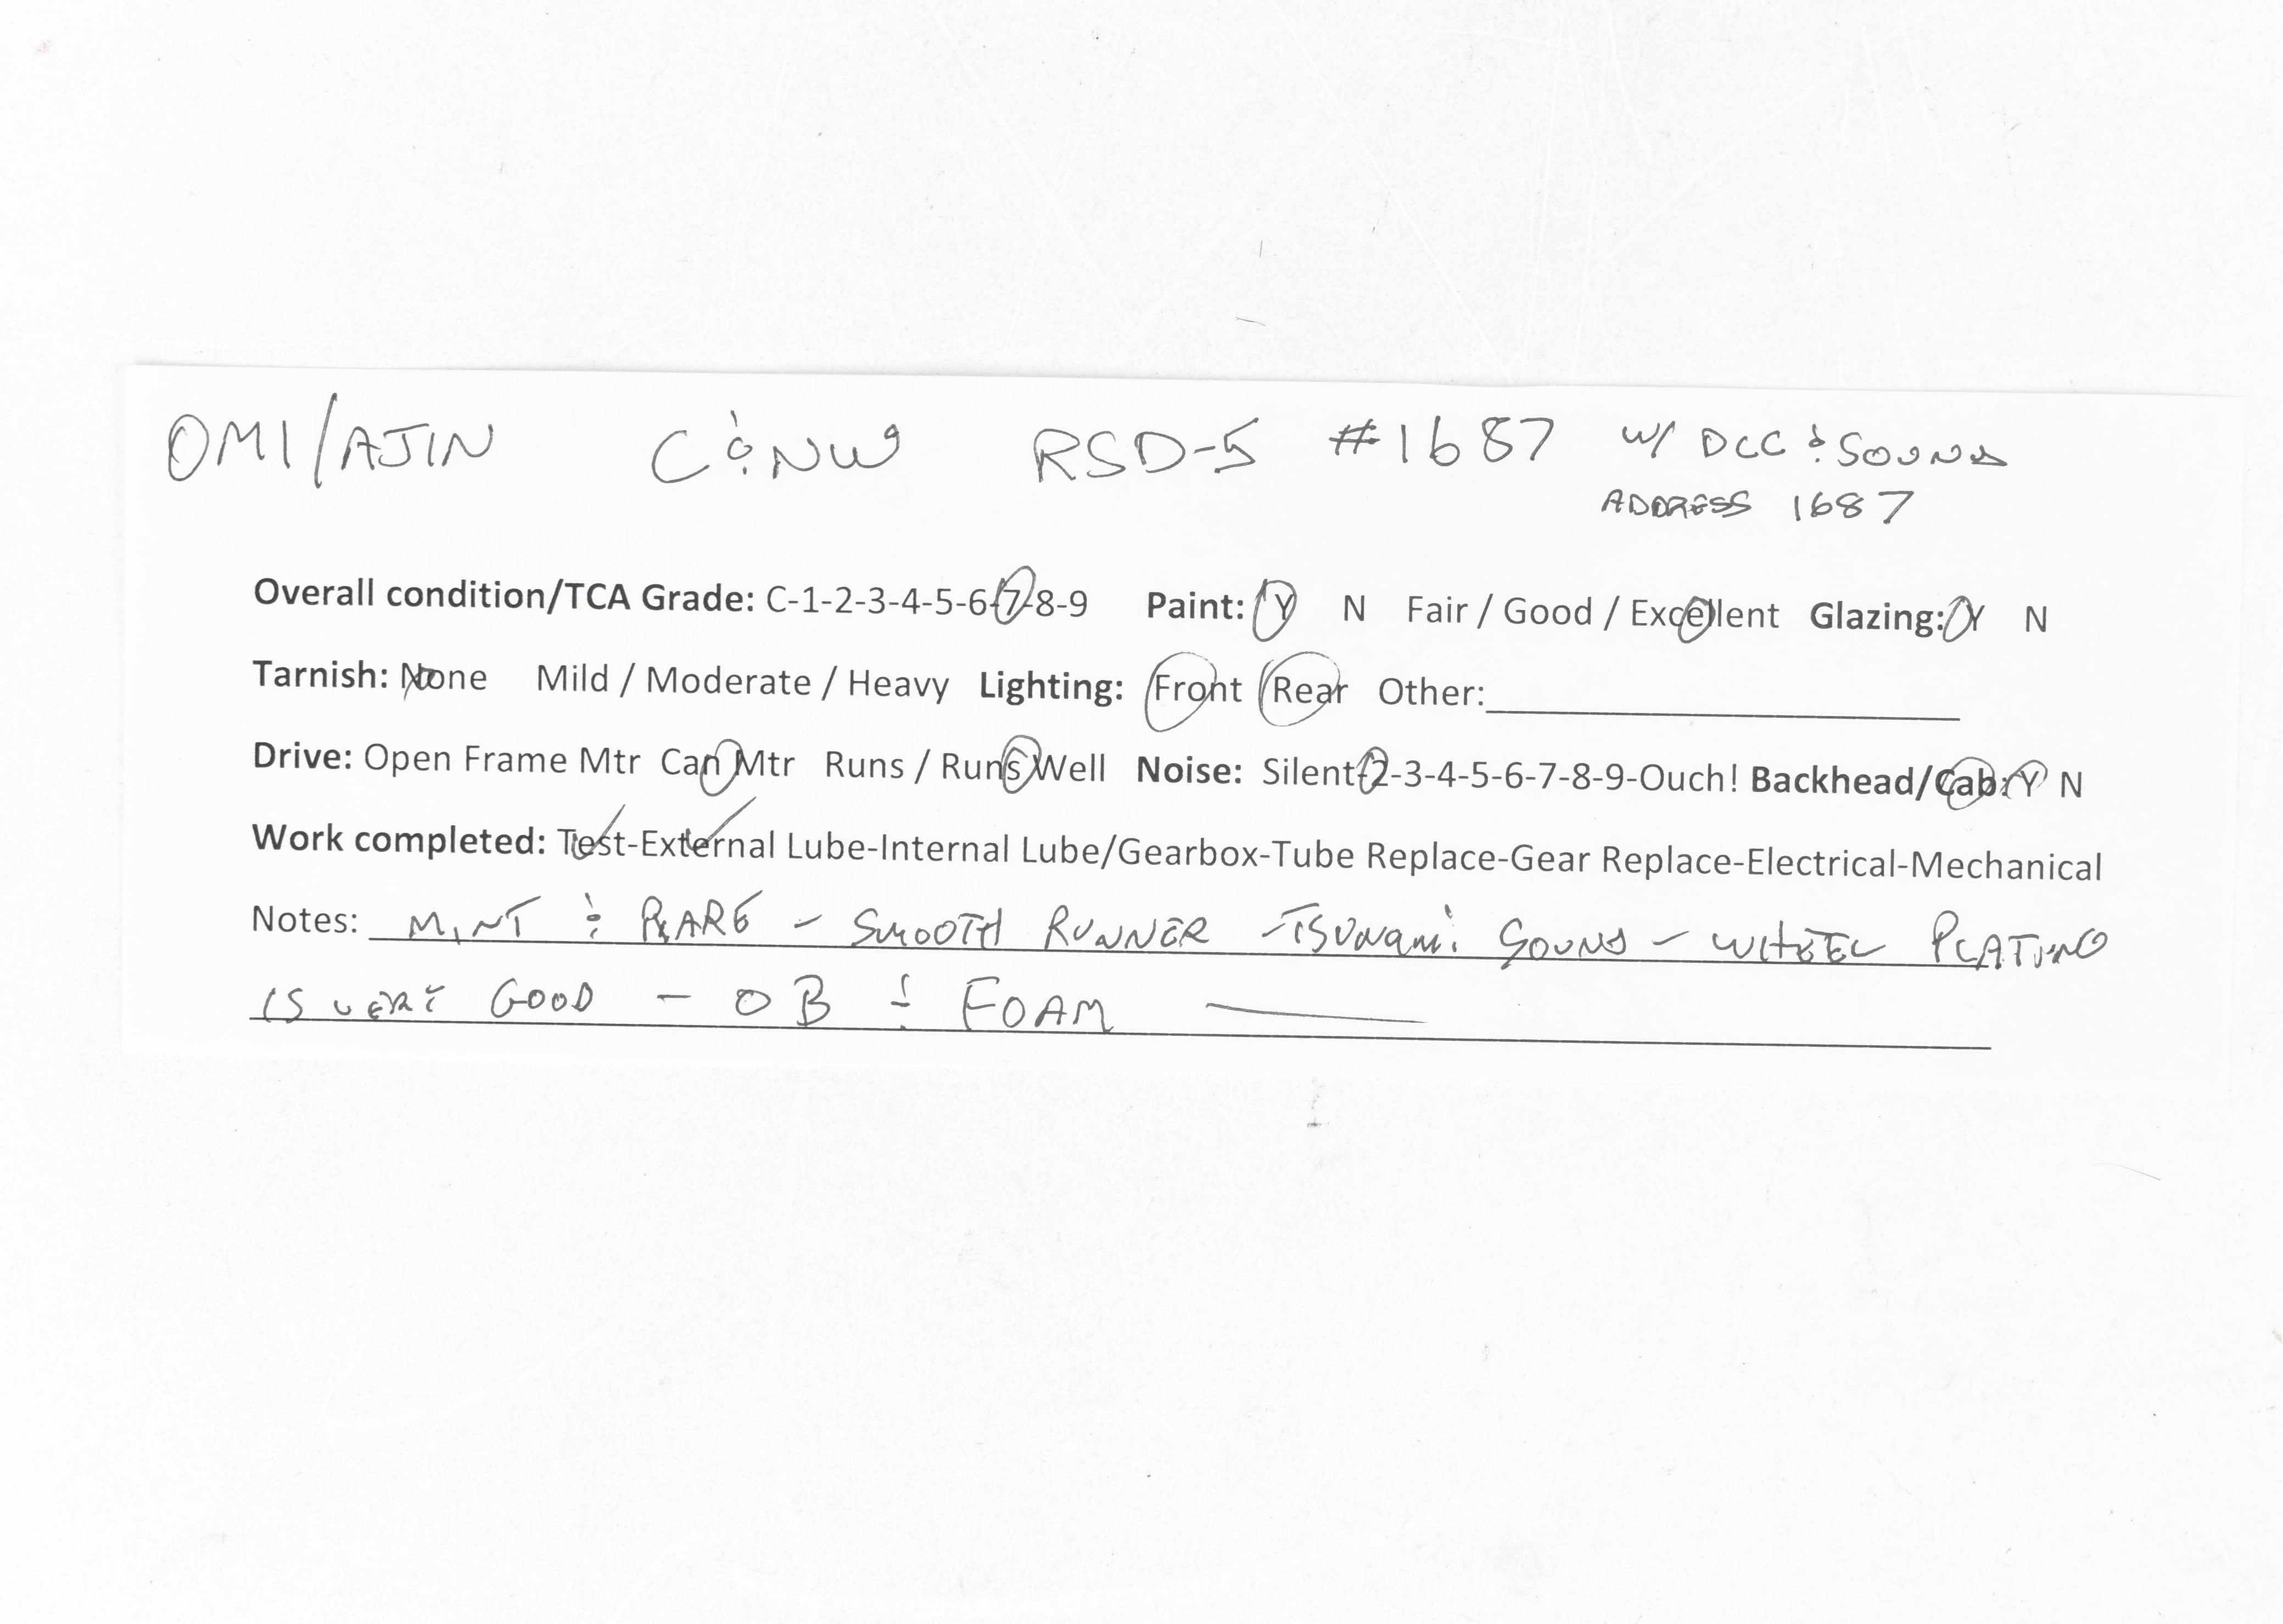 OMI/AJIN C&NW RSD-5 #1687 w/ DCC & SOUND
ADDRESS 1687
Overall condition/TCA Grade: C-1-2-3-4-5-6-7-8-9 Paint: Y N Fair / Good / Excellent Glazing: Y N
Tarnish: None Mild / Moderate / Heavy Lighting: Front Rear Other:
Drive: Open Frame Mtr Can Mtr Runs / Runs Well Noise: Silent-2-3-4-5-6-7-8-9-Ouch! Backhead/Cab: Y N
Work completed: Test-External Lube-Internal Lube/Gearbox-Tube Replace-Gear Replace-Electrical-Mechanical
Notes: MINT & RARE - SMOOTH RUNNER - TSUNAMI SOUND - WHEEL PLATING
IS VERY GOOD - OB & FOAM